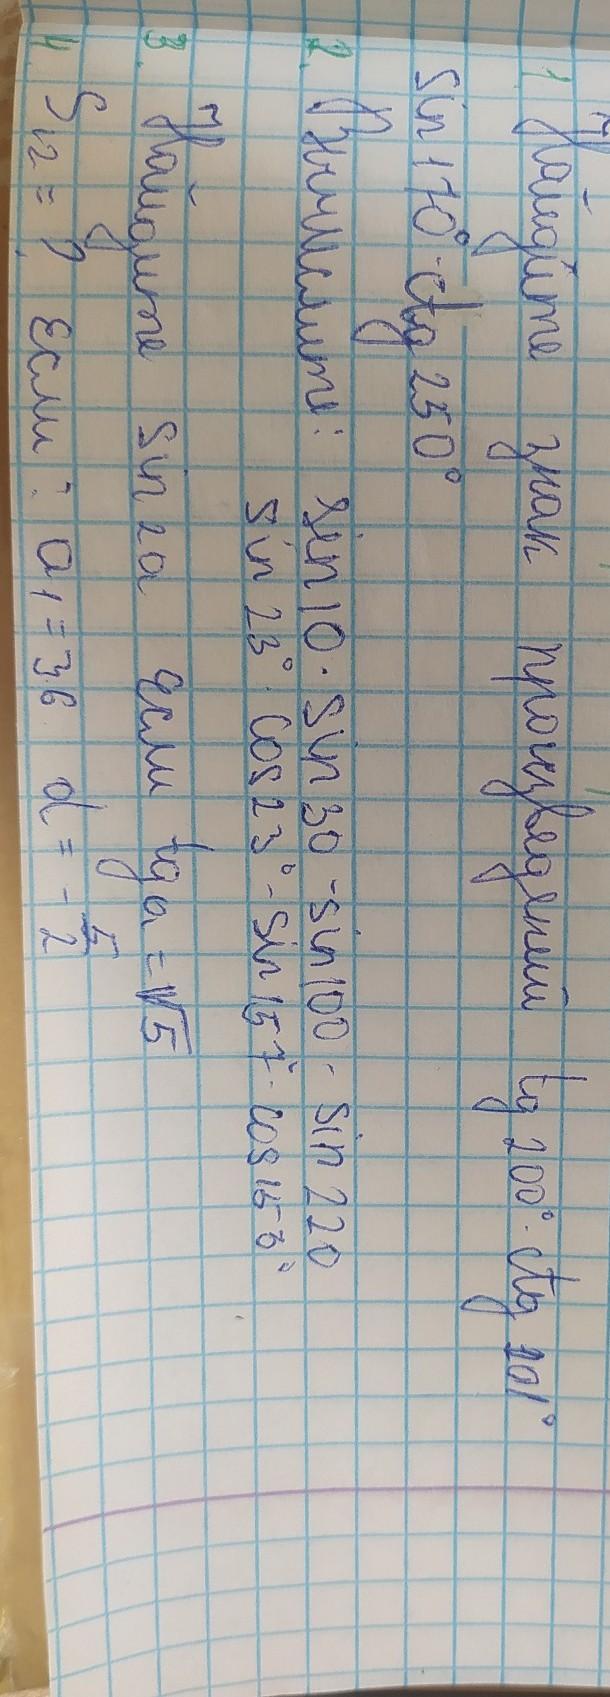 1. Найдите знак произведений tg 200° · ctg 201°
sin 170° · ctg 250°
2. Вычислить: sin 10 · sin 30 · sin 100 · sin 220
sin 23° · cos 23° - sin 157° · cos 153°
3. Найдите sin 2a если tg a = √5
4. S₁₂ = ? Если: a₁ = 3.6 d = - 5/2